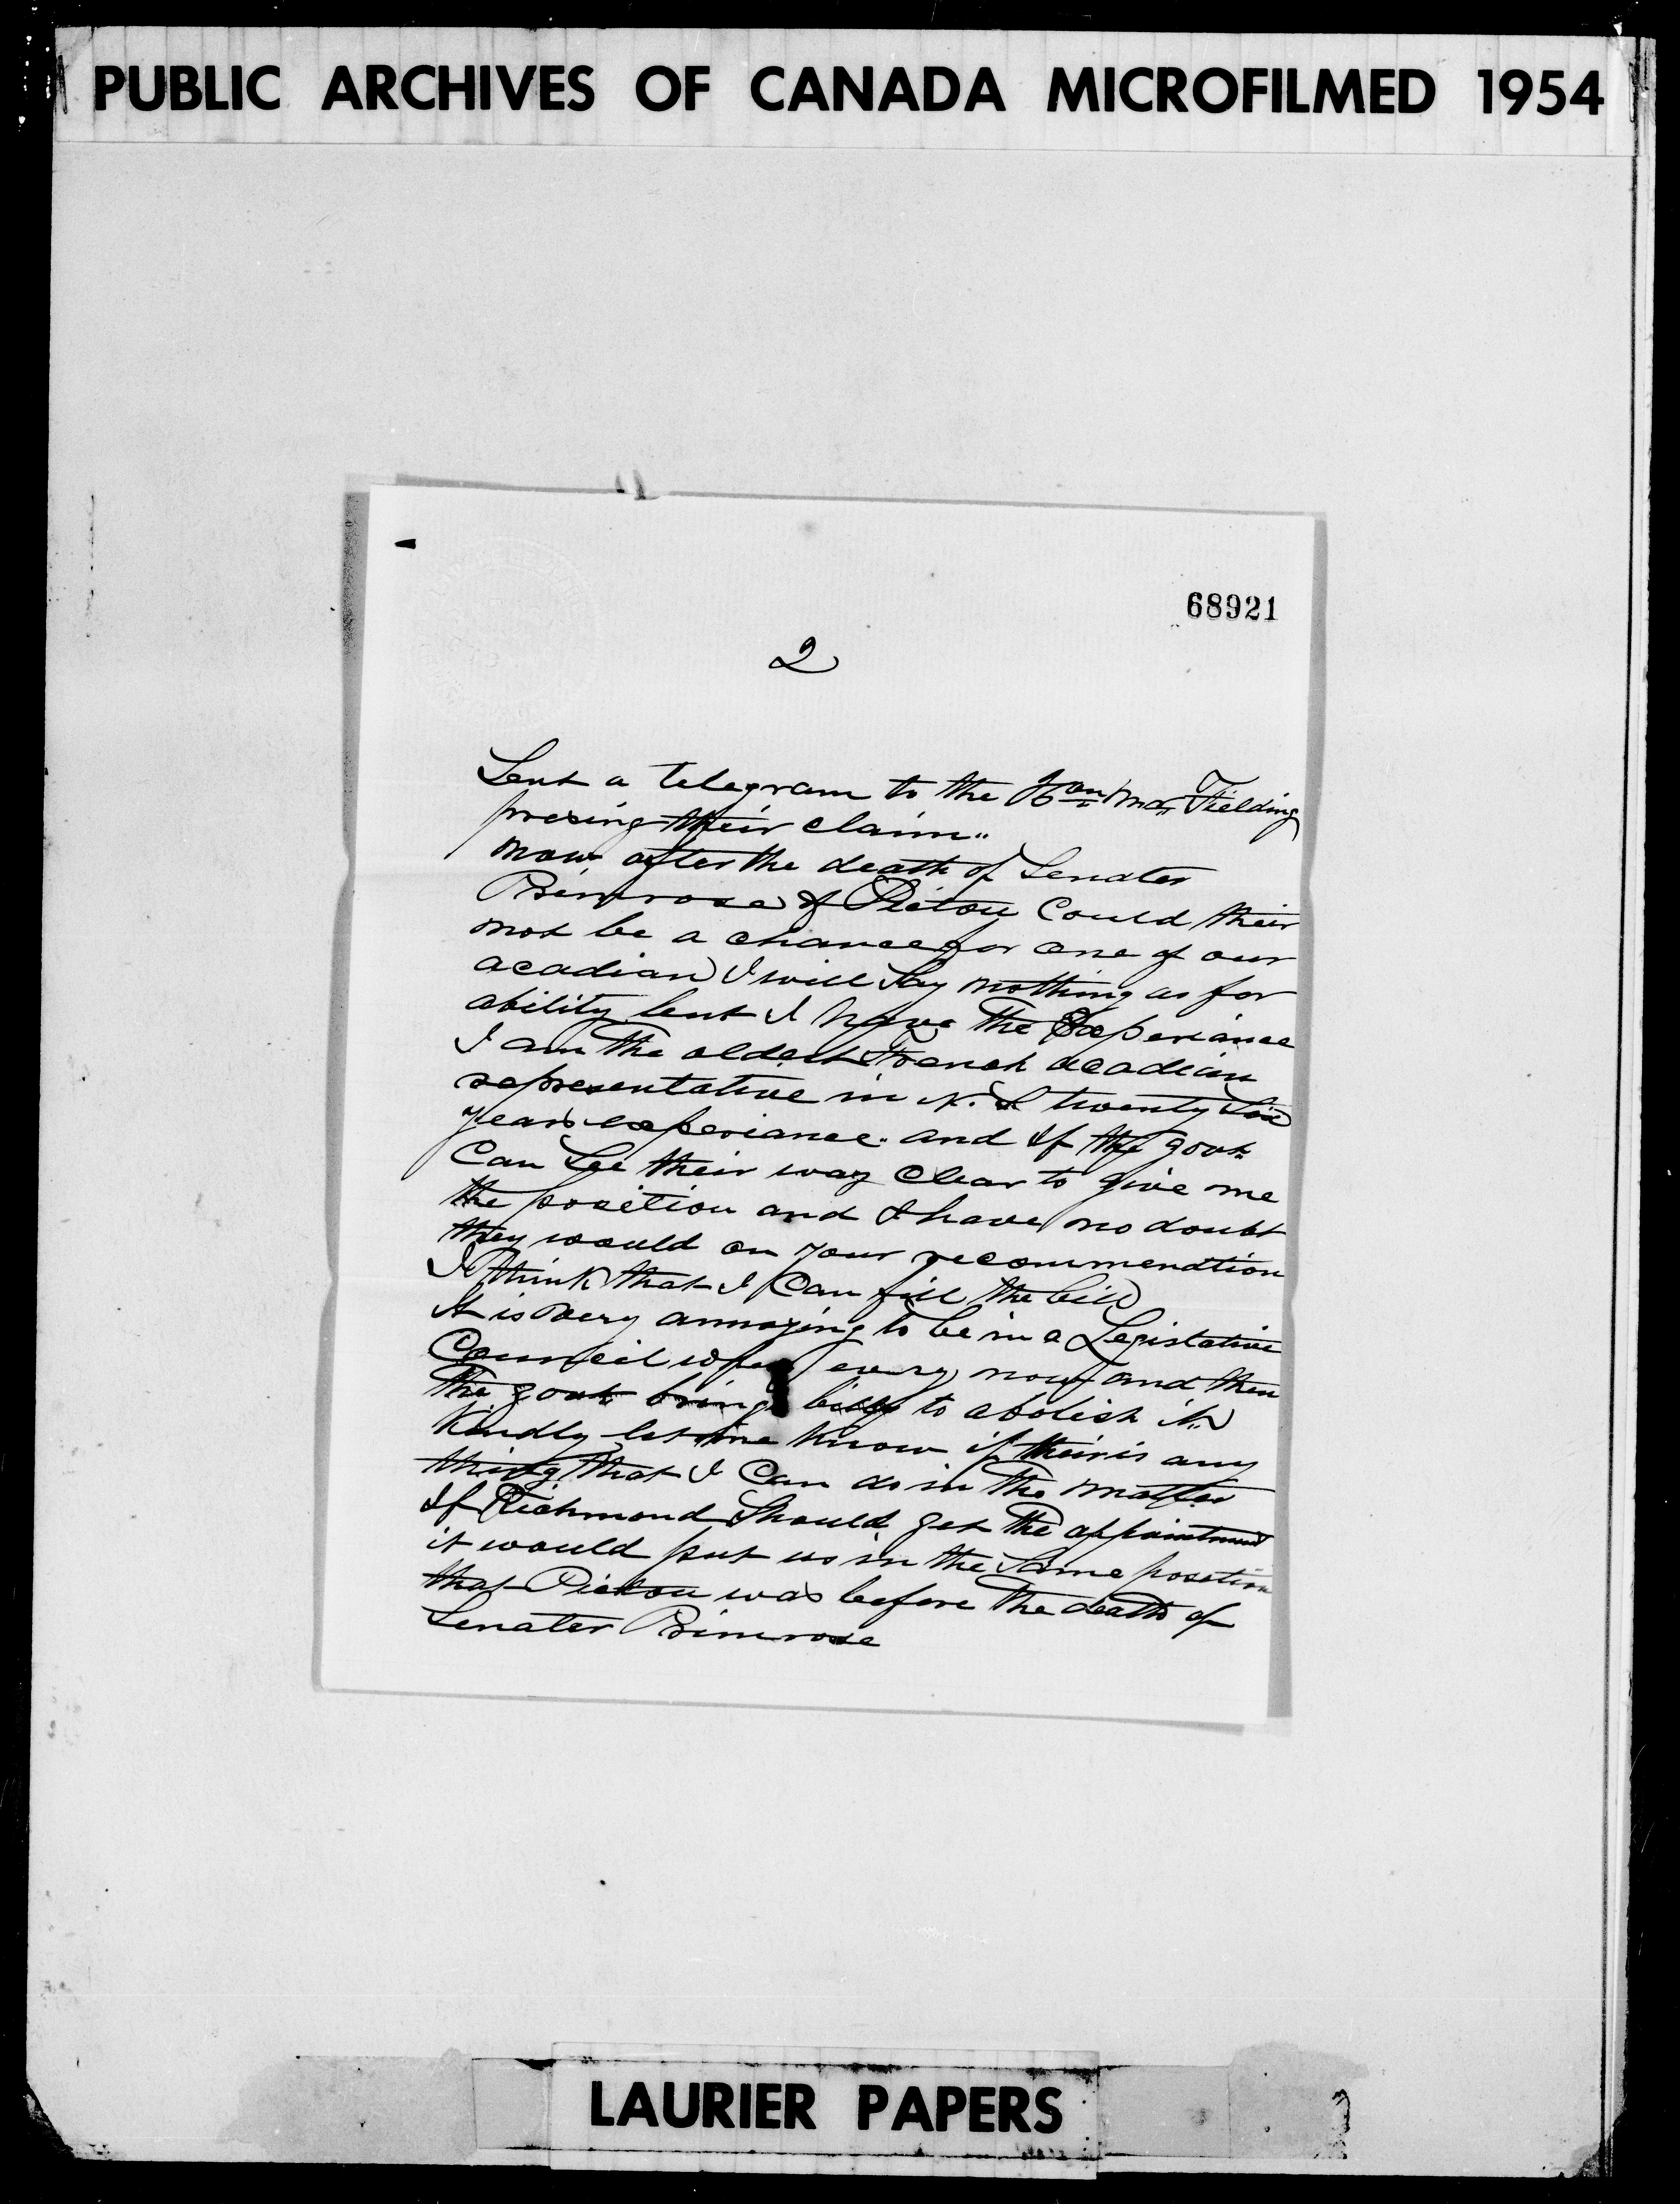 PUBLIC ARCHIVES OF CANADA MICROFILMED 1954
68921
2
Sent a telegram to the Hon Mr Fielding
presing their claim
now after the death of Senater
Primrose of Pictou Could their
not be a chance for one of our
acadian I will Say nothing as for
ability but I have the Experiance
I am the oldest French acadian
representative in N. S twenty Six
years experiance and If the govt
Can See their way Clear to give me
the position and I have no doubt
they would on your recommendtion
I think that I Can fill the bill
It is very annoying to be in a Legislative
Council when every now and then
the govt bring bills to abolish it
Kindly let me Know if their is any
thing that I Can do in the matter
If Richmond Should get the appointment
it would put us in the Same position
that Pictou was before the death of
Senater Primrose
LAURIER PAPERS